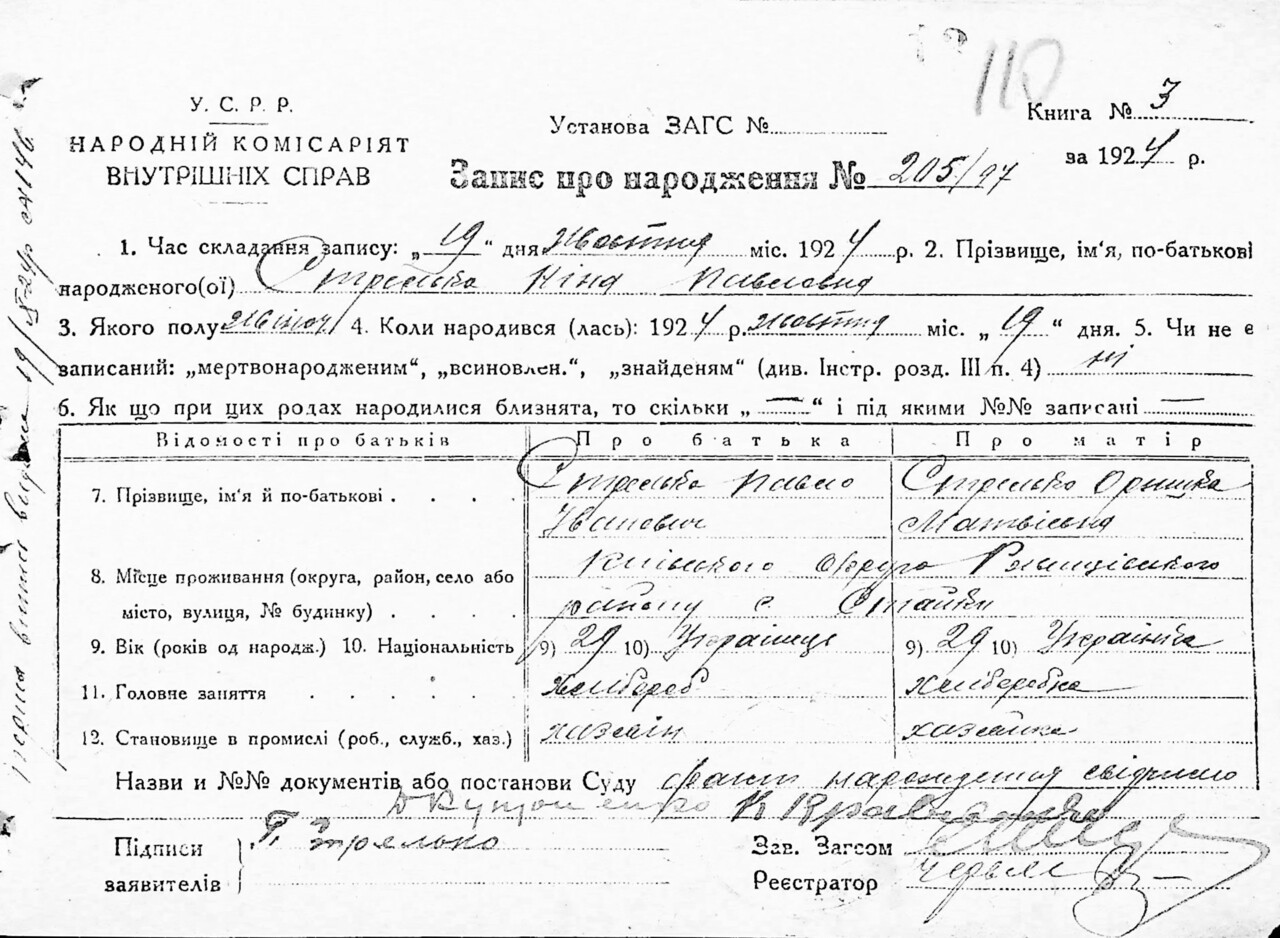 110
У. С. Р. Р.
НАРОДНІЙ КОМІСАРІЯТ
ВНУТРІШНІХ СПРАВ
Установа ЗАГС №
Книга № 3
за 1924 р.
Запис про народження № 205/97
1. Час складання запису: „19“ дня Жовтня міс. 1924 р. 2. Прізвище, ім'я, по-батькові
народженого(ої) Стрелька Ніна Павловна
3. Якого полу Жіноч 4. Коли народився (лась): 1924 р. Жовтня міс. „19“ дня. 5. Чи не є
записаний: „мертвонародженим“, „всиновлен.“, „знайденям“ (див. Інстр. розд. III п. 4) ні
6. Як що при цих родах народилися близнята, то скільки „—“ і під якими №№ записані —
Відомості про батьків Про батька Про матір
7. Прізвище, ім'я й по-батькові . . . . Стрелько Павло Стрелько Оришка
Іванович Матвієвна
8. Місце проживання (округа, район, село або Київського округа
місто, вулиця, № будинку) . . . . району с. Стайки
9. Вік (років од народж.) 10. Національність 9) 29 10) Українець 9) 29 10) Українка
11. Головне заняття . . . . . хлібороб хліборобка
12. Становище в промислі (роб., служб., хаз.) хазяїн хазяйка
Назви и №№ документів або постанови Суду факт нарождения свідчимо
Підписи
заявителів
П Стрелько
Зав. Загсом
Реєстратор